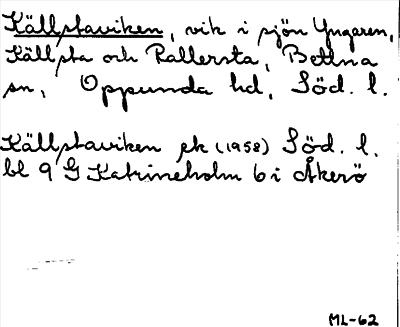 Källstaviken, vik i sjön Yngaren,
Källsta och Rallersta, Bettna
sn, Oppunda hd, Söd. l.
Källstaviken ek (1958) Söd. l.
bl 9 G Katrineholm 6 i Åkerö
ML-62